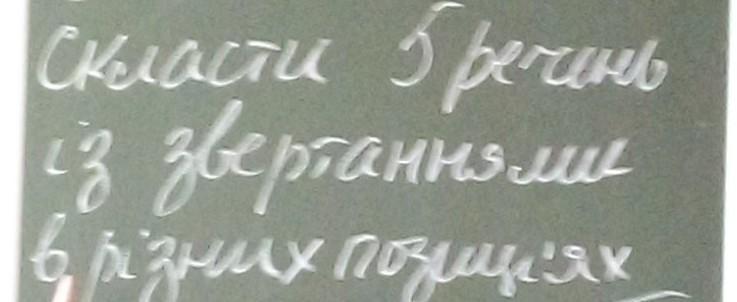 Скласти 5 речень
із звертаннями
в різних позиціях